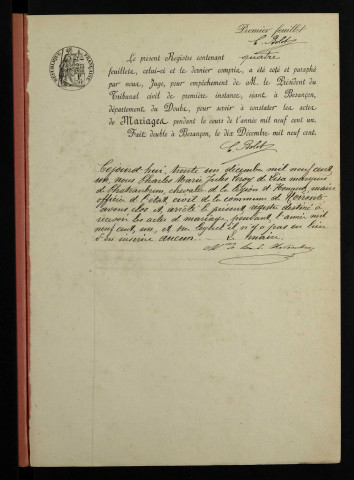 Premier feuillet
RÉPUBLIQUE FRANÇAISE
Le présent Registre contenant quatre
feuillets, celui-ci et le dernier compris, a été coté et paraphé
par nous, Juge, pour empêchement de M. le Président du
Tribunal civil de première instance, séant à Besançon,
département du Doubs, pour servir à constater les actes
de Mariages pendant le cours de l'année mil neuf cent un.
Fait double à Besançon, le dix Décembre mil neuf cent.
Cejourd'hui, trente un décembre mil neuf cent
un, nous Charles Marie Jules de marquis
de chevalier de la légion d'Honneur, maire
officier de l'état civil de la commune de
avons clos et arrêté le présent registre destiné à
recevoir les actes de mariage, pendant l'année mil
neuf cent un, et sur lequel il n'y a pas eu lieu
d'en inscrire aucun. Le maire